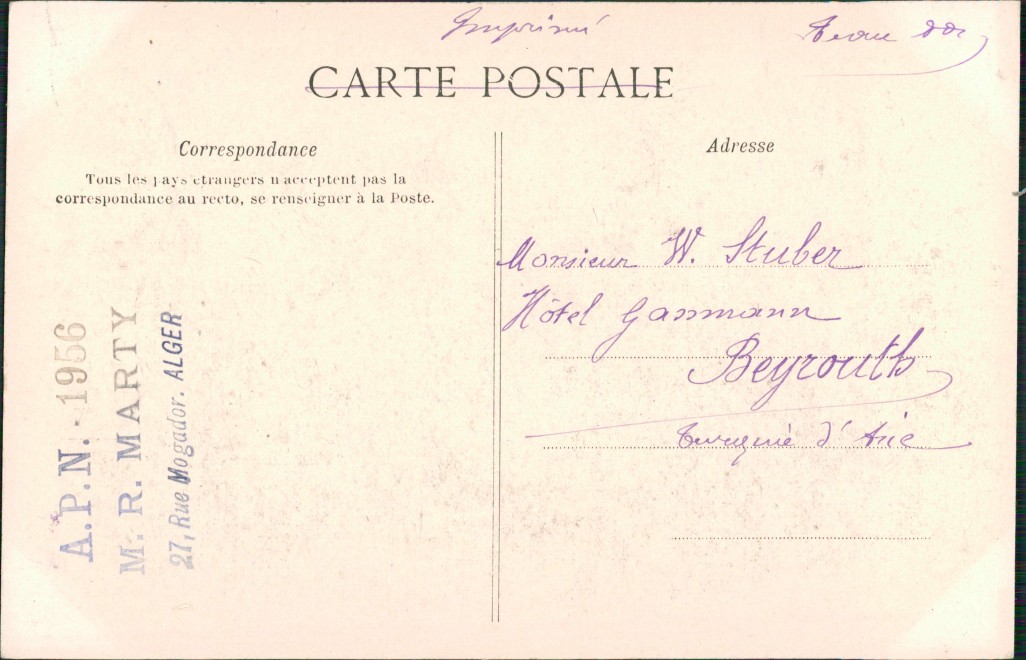 Imprimé
CARTE POSTALE
Correspondance
Tous les pays étrangers n'acceptent pas la
correspondance au recto, se renseigner à la Poste.
Adresse
Monsieur W. Stuber
Hôtel Gassmann
Beyrouth
Turquie d'Asie
A.P.N. - 1956
M. R. MARTY
27, Rue Mogador. ALGER